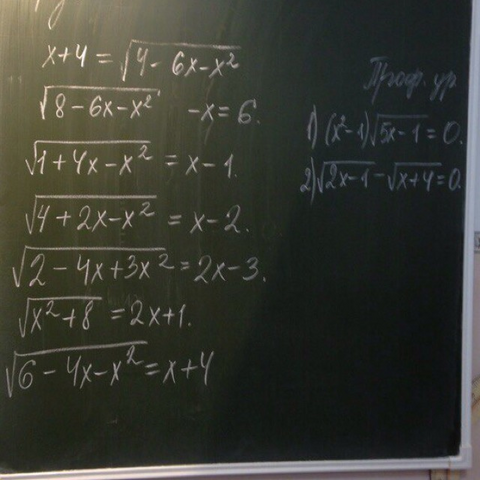 x+4 = √(4 - 6x - x²)
√(8 - 6x - x²) - x = 6.
√(1 + 4x - x²) = x - 1.
√(4 + 2x - x²) = x - 2.
√(2 - 4x + 3x²) = 2x - 3.
√(x² + 8) = 2x + 1.
√(6 - 4x - x²) = x + 4
Проф. ур.
1) (x² - 1)√(5x - 1) = 0.
2) √(2x - 1) - √(x + 4) = 0.